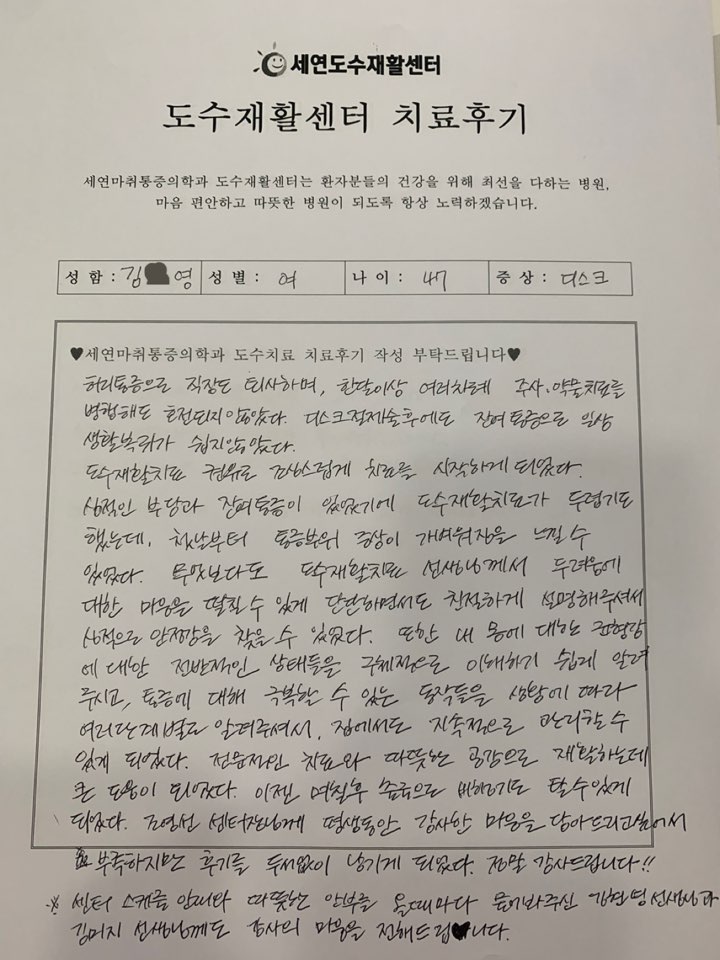 세연도수재활센터
도수재활센터 치료후기
세연마취통증의학과 도수재활센터는 환자분들의 건강을 위해 최선을 다하는 병원,
마음 편안하고 따뜻한 병원이 되도록 항상 노력하겠습니다.
성 함 : 김 영 성 별 : 여 나 이 : 47 증 상 : 디스크
♥세연마취통증의학과 도수치료 치료후기 작성 부탁드립니다♥
허리통증으로 직장도 퇴사하며, 한달이상 여러차례 주사·약물치료를
병행해도 호전되지 않았다. 디스크절제술후에도 잔여통증으로 일상
생활복귀가 쉽지않았다.
도수재활치료 권유로 조심스럽게 치료를 시작하게 되었다.
심적인 부담과 잔여통증이 있었기에 도수재활치료가 두렵기도
했는데, 첫날부터 통증부위 증상이 가벼워짐을 느낄 수
있었다. 무엇보다도 도수재활치료 선생님께서 두려움에
대한 마음을 떨칠 수 있게 단단하면서도 친절하게 설명해주셔서
심적으로 안정감을 찾을 수 있었다. 또한 내 몸에 대한 균형감
에 대한 전반적인 상태들을 구체적으로 이해하기 쉽게 알려
주시고, 통증에 대해 극복할 수 있는 동작들을 상황에 따라
여러단계별로 알려주셔서, 집에서도 지속적으로 관리할 수
있게 되었다. 전문적인 치료와 따뜻한 공감으로 재활하는데
큰 도움이 되었다. 이젠 며칠후 출국으로 비행기도 탈 수 있게
되었다. 김영선 센터장님께 평생동안 감사한 마음을 담아드리고싶어서
부족하지만 후기를 두서없이 남기게 되었다. 정말 감사드립니다!!
※ 센터 스케줄 안내와 따뜻한 안부를 올때마다 물어봐주신 선생님과
김미지 선생님께도 감사의 마음을 전해드립♥니다.